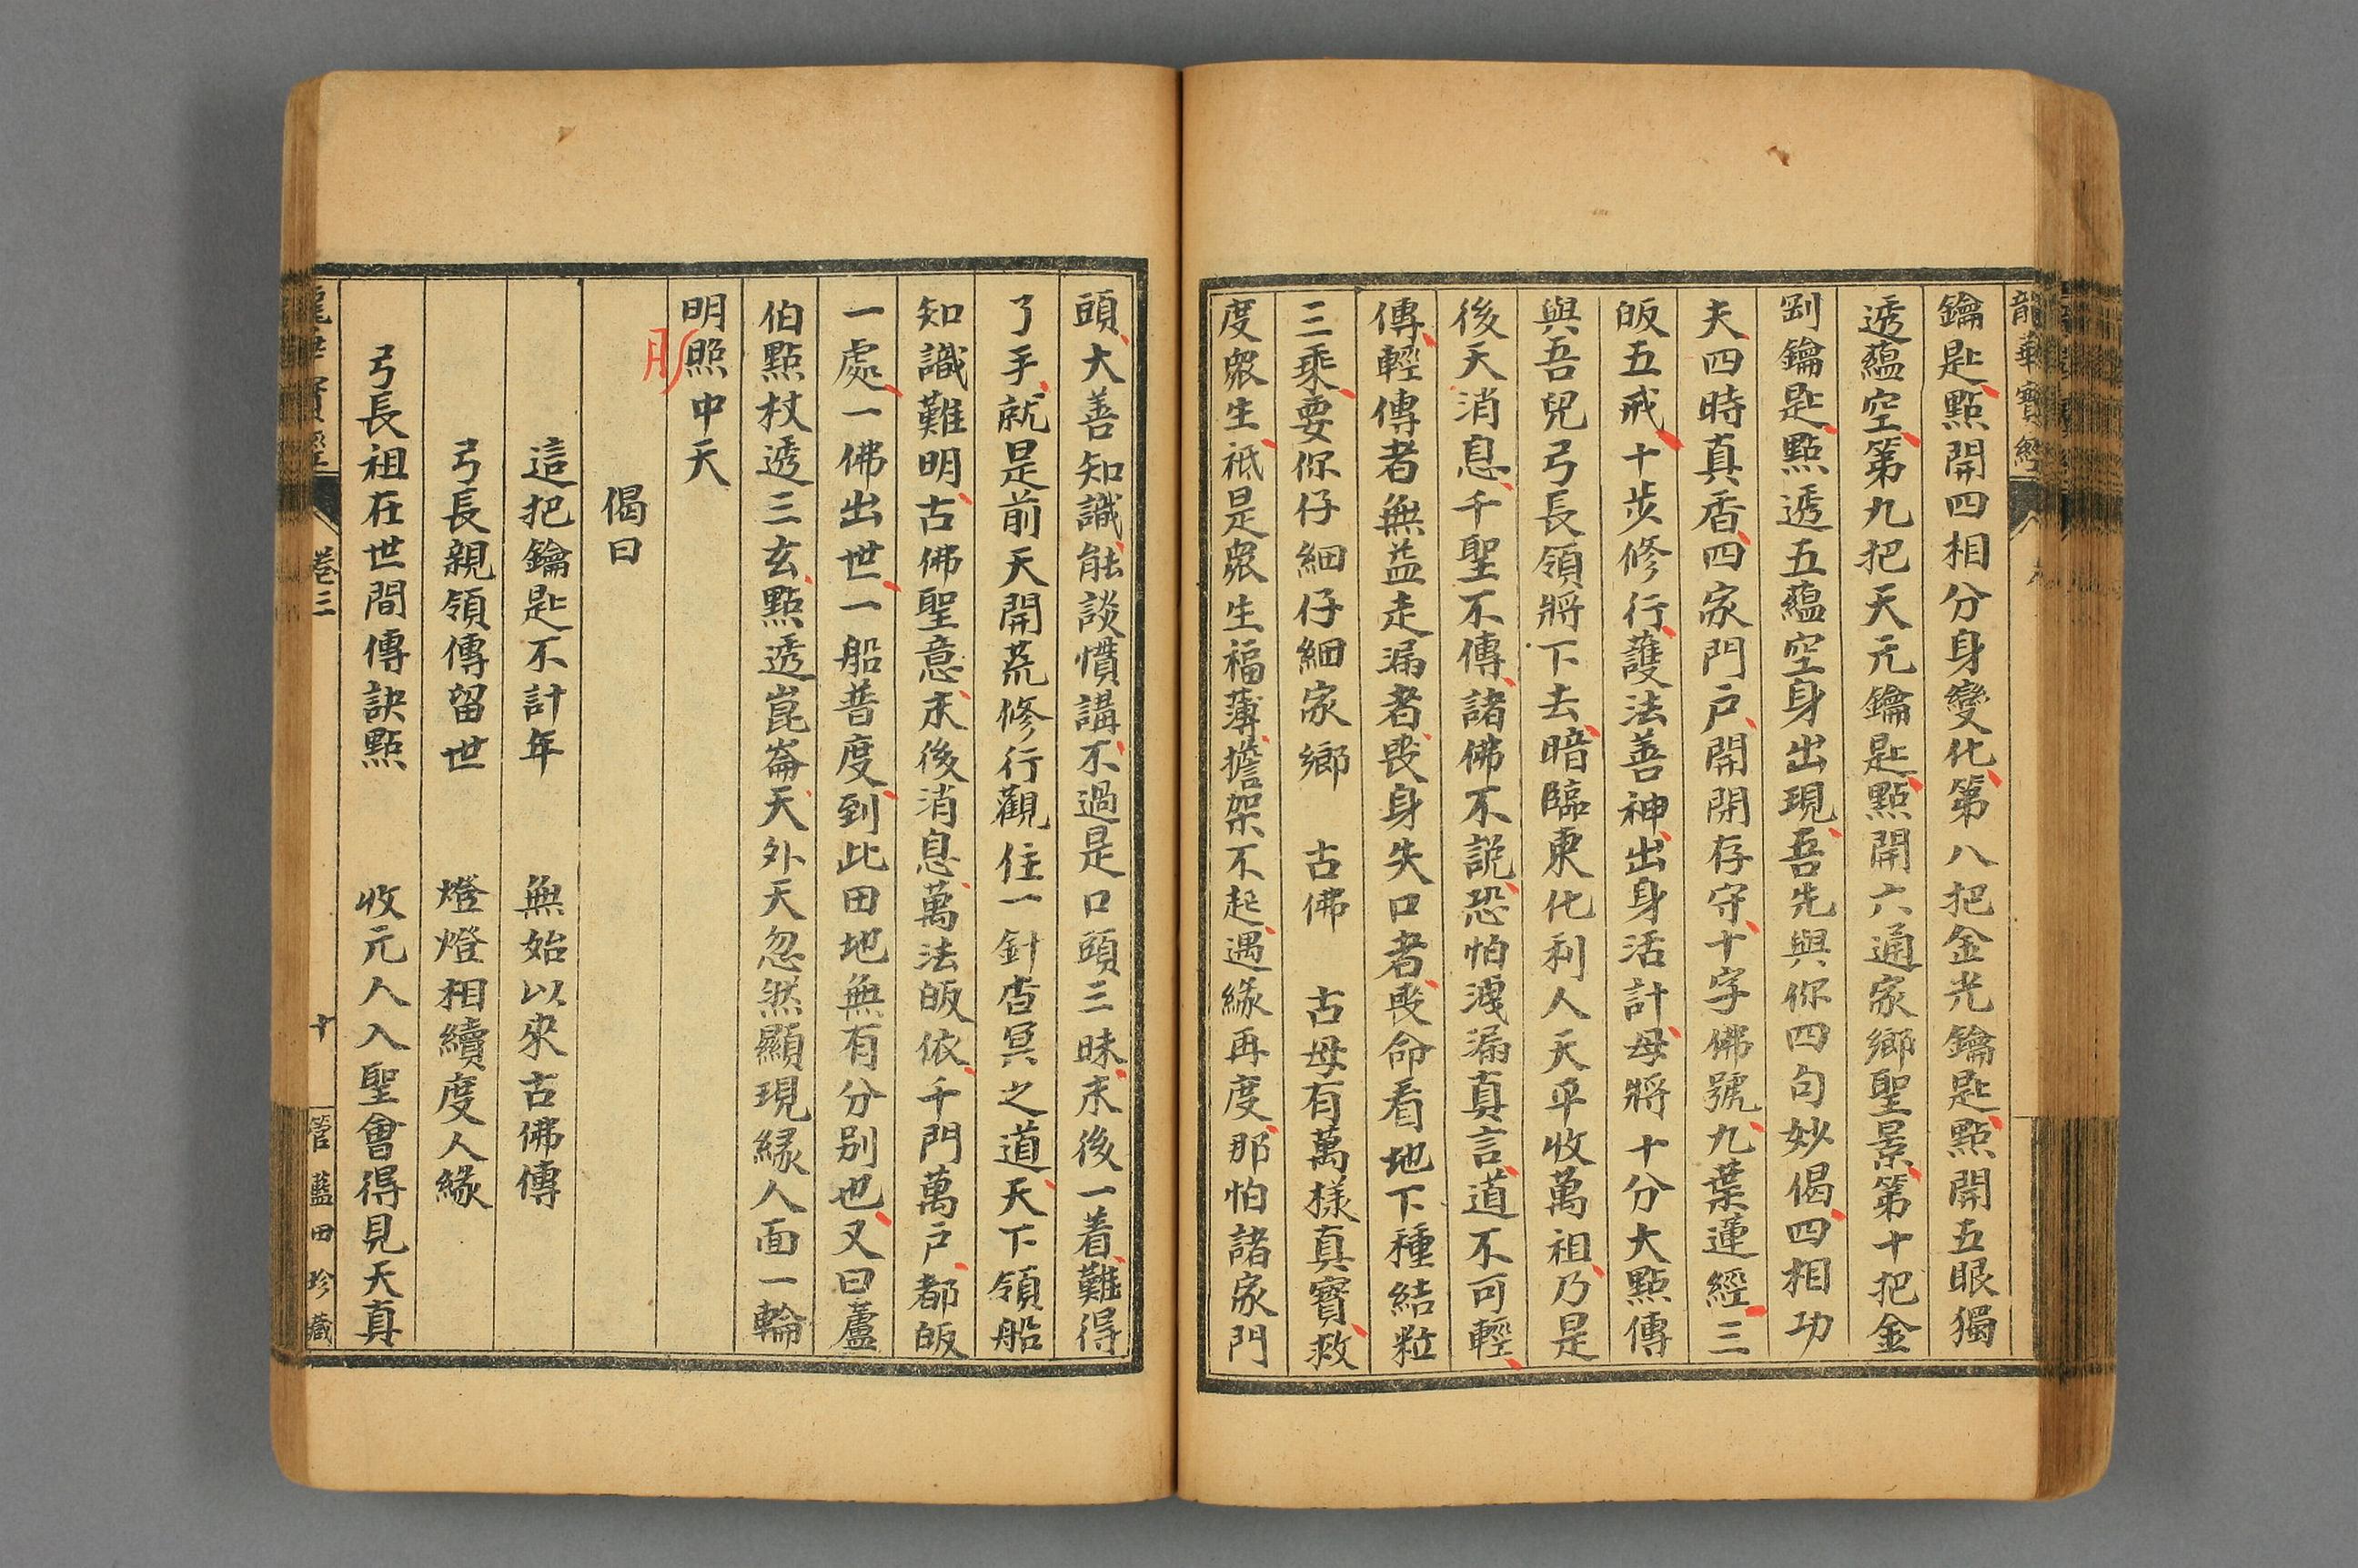 龍華寶經
鑰匙點開四相分身變化第八把金光鑰匙點開五眼獨
透蘊空第九把天元鑰匙點開六通家鄉聖景第十把金
剛鑰匙點透五蘊空身出現吾先與你四句妙偈四相功
夫四時真香四家門戶開開存守十字佛號九葉蓮經三
皈五戒十步修行護法善神出身活計母將十分大點傳
與吾兒弓長領將下去暗臨東化利人天平收萬祖乃是
後天消息千聖不傳諸佛不說恐怕洩漏真言道不可輕
傳輕傳者無益走漏者喪身失口者喪命看地下種結粒
三乘要你仔細仔細家鄉　古佛　古母有萬樣真寶救
度衆生祗是衆生福薄擔架不起遇緣再度那怕諸家門
頭大善知識能談慣講不過是口頭三昧末後一着難得
了手就是前天開荒修行觀住一針杳冥之道天下領船
知識難明古佛聖意末後消息萬法皈依千門萬戶都皈
一處一佛出世一船普度到此田地無有分别也又曰蘆
伯點杖透三玄點透崑崙天外天忽然顯現緣人面一輪
明照中天
偈曰
這把鑰匙不計年　無始以來古佛傳
弓長親領傳留世　燈燈相續度人緣
弓長祖在世間傳訣點　收元人入聖會得見天真
龍華寶經　卷三　十　管藍田珍藏